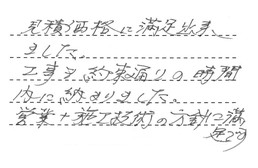 見積価格に満足出来
ました。
工事も約束通りの時間
内に納まりました。
営業+施工技術の方針に満
足です